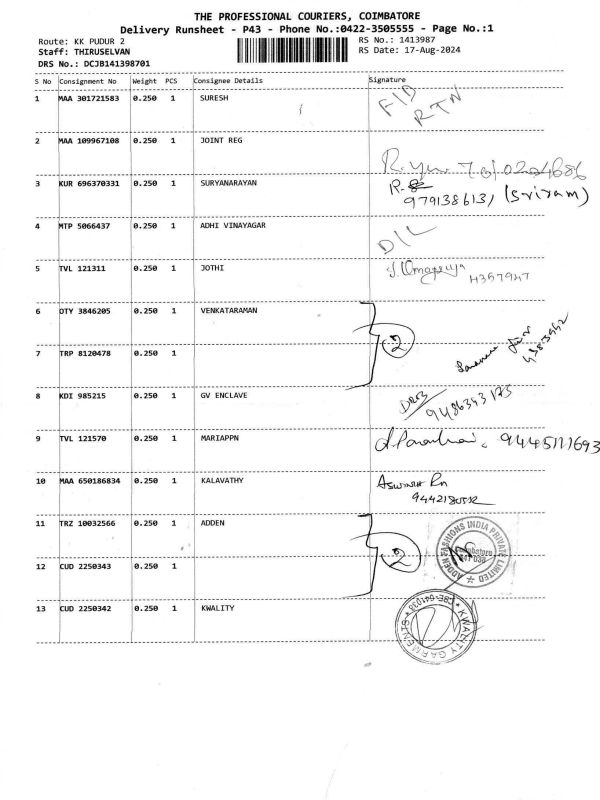 THE PROFESSIONAL COURIERS, COIMBATORE
Delivery Runsheet - P43 - Phone No.:0422-3505555 - Page No.:1
Route: KK PUDUR 2 RS No.: 1413987
Staff: THIRUSELVAN RS Date: 17-Aug-2024
DRS No.: DCJB141398701
S No Consignment No Weight PCS Consignee Details Signature
1 MAA 301721583 0.250 1 SURESH
RTN
2 MAA 109967108 0.250 1 JOINT REG
3 KUR 696370331 0.250 1 SURYANARAYAN
9791386131 (Sriram)
4 MTP 5066437 0.250 1 ADHI VINAYAGAR
D/L
5 TVL 121311 0.250 1 JOTHI
6 OTY 3846205 0.250 1 VENKATARAMAN
2
7 TRP 8120478 0.250 1
8 KDI 985215 0.250 1 GV ENCLAVE
9486343173
9 TVL 121570 0.250 1 MARIAPPN
10 MAA 650186834 0.250 1 KALAVATHY
11 TRZ 10032566 0.250 1 ADDEN
2
ADDEN FASHIONS INDIA PRIVATE LIMITED
Coimbatore
12 CUD 2250343 0.250 1
13 CUD 2250342 0.250 1 KWALITY
KWALITY GARMENTS
CBE-641038